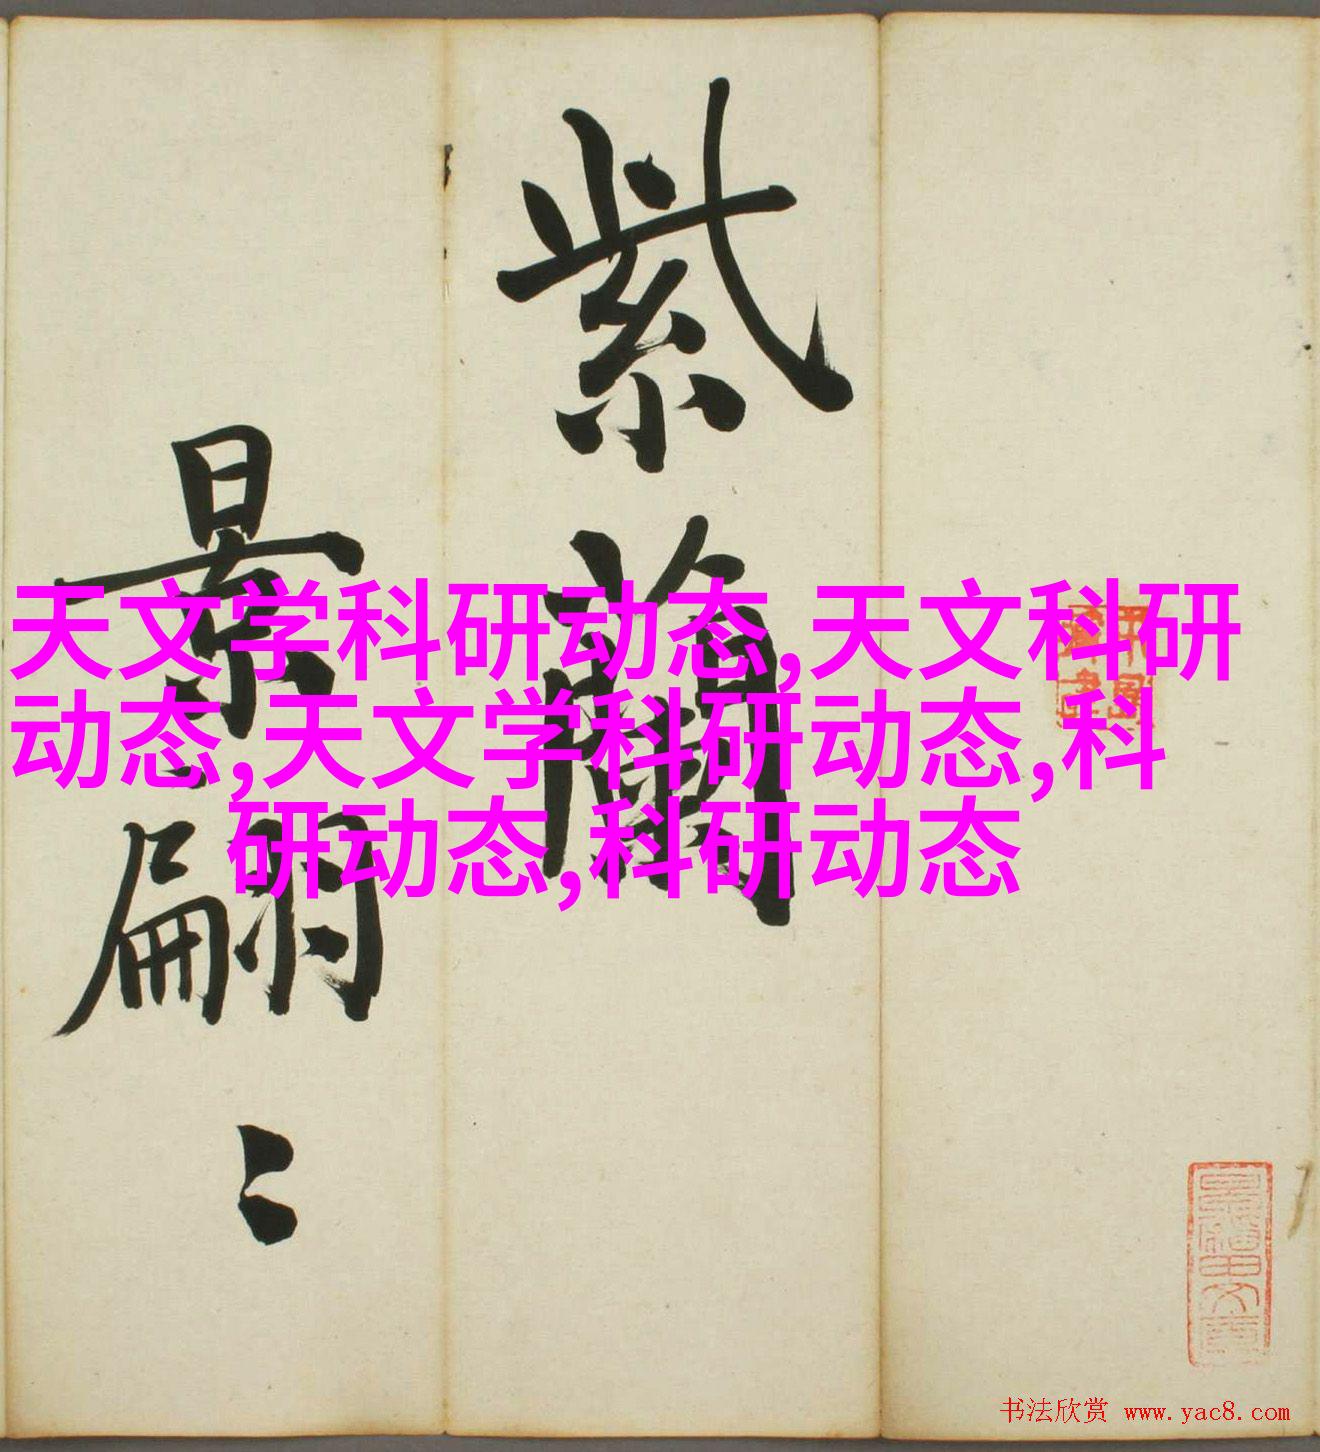 天文学科研动态,天文科研
动态,天文学科研动态,科
研动态,科研动态
紫蘭
景翩〻
书法欣赏 www.yac8.com